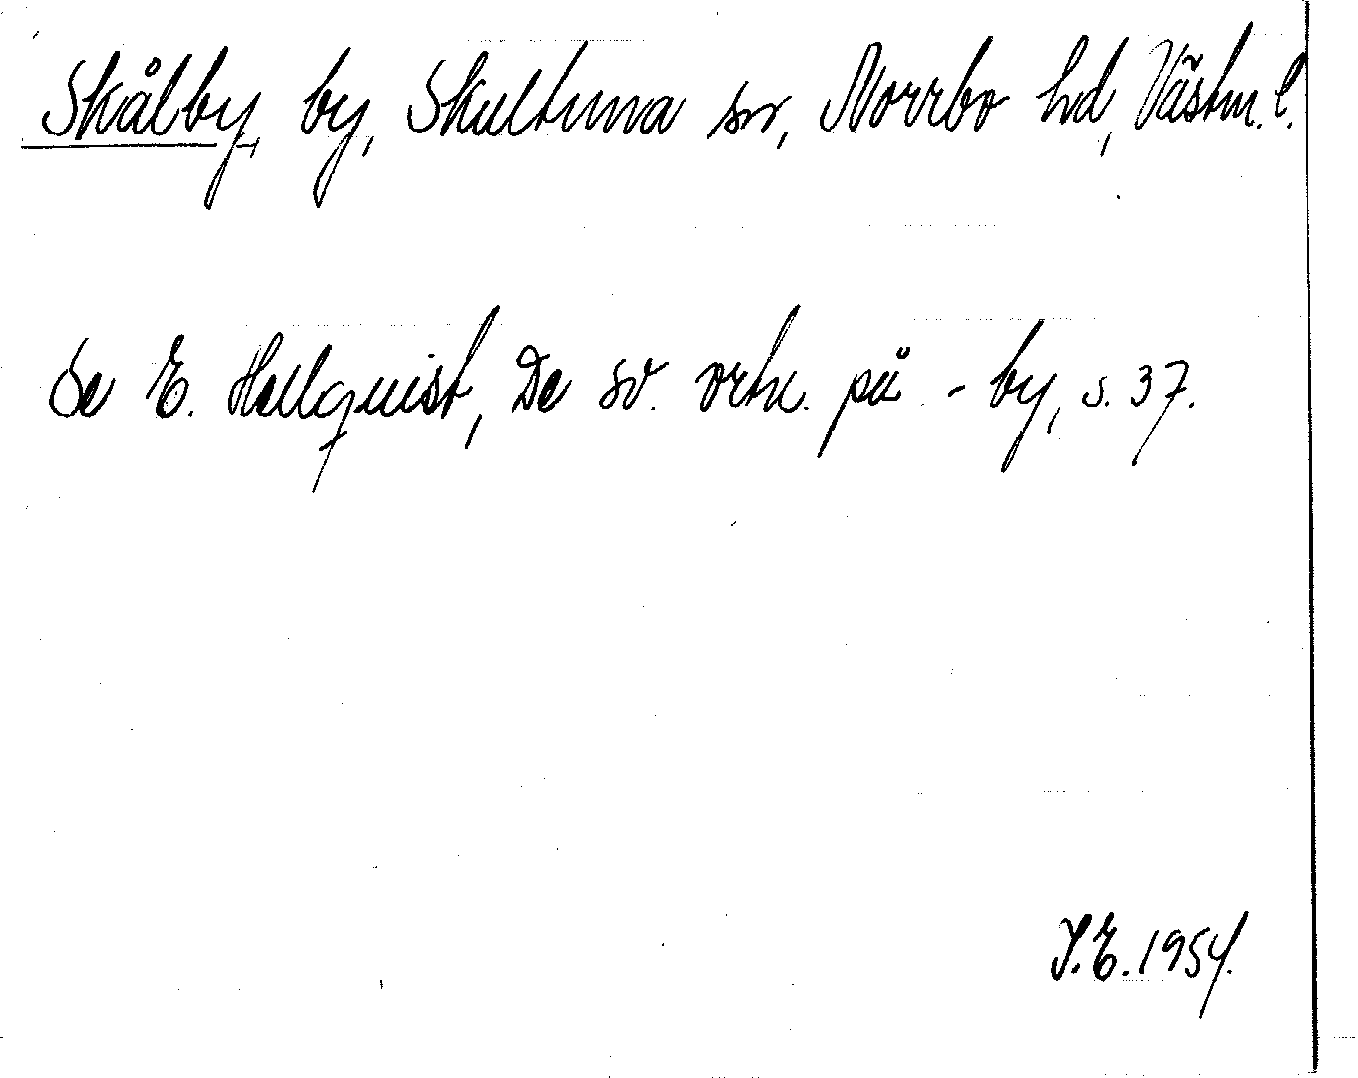 Skålby, by, Skultuna sn, Norrbo hd, Västm. l.
Se E. Hellquist, De sv. ortn. på -by, s. 37.
I.E. 1954.